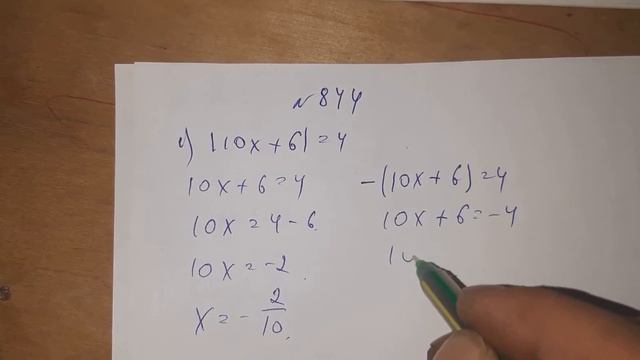 №844
e) |10x+6|=4
10x+6=4
10x=4-6
10x=-2
x=-2/10
-(10x+6)=4
10x+6=-4
10